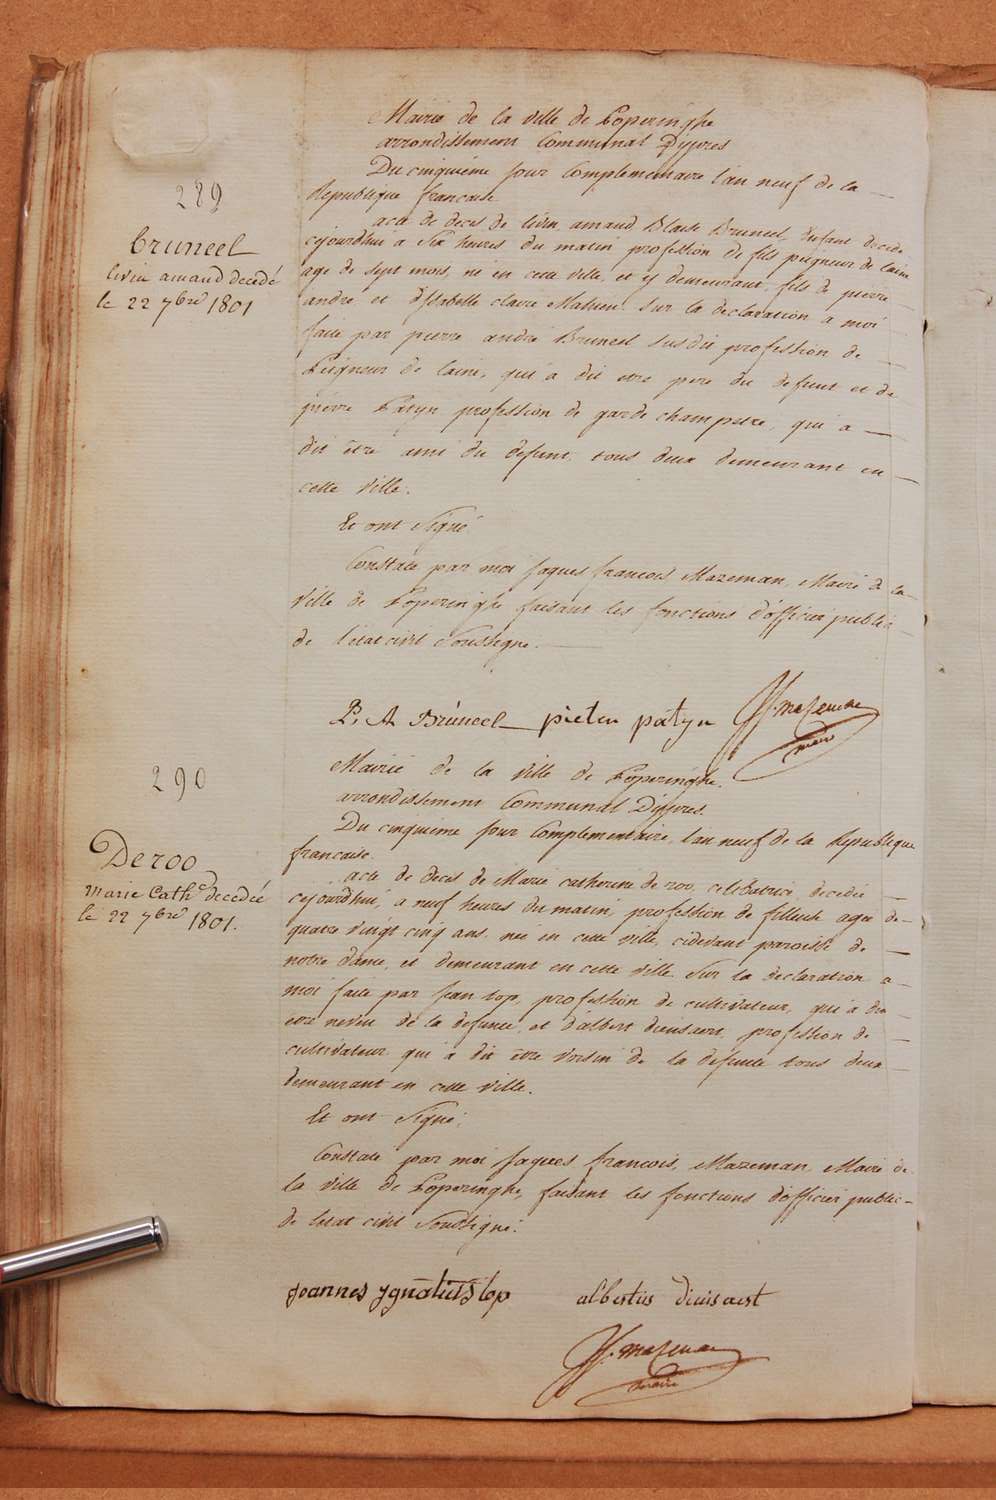 Mairie de la ville de Poperinghe
arrondissement Communal D'ypres
Du cinquieme jour Complementaire l'an neuf de la
Republique francaise
289
Bruneel
livin amand decedé
le 22 7bre 1801
acte de deces de livin amand Blaise Bruneel, Enfant decedé
cejourdhui a Six heures du matin profession de fils peigneur de laine
age de sept mois, né en cette ville, et y demeurant, fils de pierre
andré et d'Isabelle claire Mahieu. Sur la declaration a moi
faite par pierre andré Bruneel susdit profession de
Peigneur de laine, qui a dit etre pere du defunt et de
pierre Patyn profession de garde champetre, qui a
dit être ami du defunt, tous deux demeurant en
cette ville.
Et ont Signé
Constaté par moi Jaques francois Mazeman, Maire de la
Ville de Poperinghe faisant les fonctions d'officier public
de l'etat civil Soussigne.
P. A Brúneel pieter patyn JJ. mazeman
maire
290
Mairie de la ville de Poperinghe.
arrondissement Communal D'ypres.
Du cinquieme jour Complementaire, l'an neuf de la Republique
francaise.
Deroo
Marie Cathe decedée
le 22 7bre 1801.
acte de deces de Marie catherine de roo, celebatrice decedée
cejourdhui, a neuf heures du matin, profession de fileuse agee de
quatre vingt cinq ans. née en cette ville, cidevant paroisse de
notre dame, et demeurant en cette ville Sur la declaration a
moi faite par Jean top, profession de cultivateur, qui a dit
etre neveu de la defunte, et d'albert dieusaert, profession de
cultivateur qui a dit être voisin de la defunte tous deux
demeurant en cette ville.
Et ont Signe:
Constaté par moi Jaques francois, Mazeman, Maire de
la ville de Poperinghe, faisant les fonctions d'officier public
de letat civil Soussigné:
joannes ygnatius top albertus dieusaert
JJ. mazeman
maire